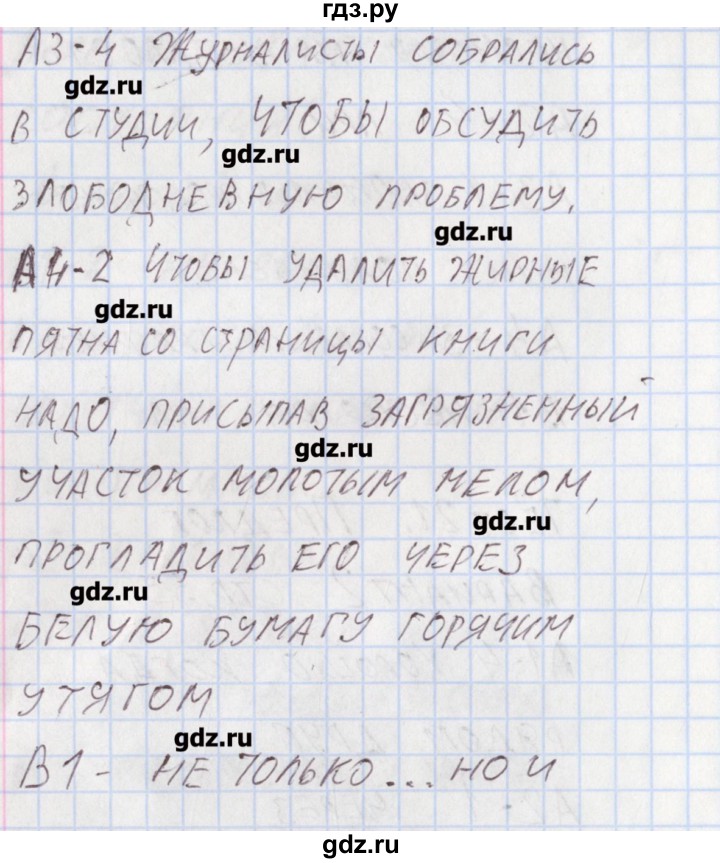 гдз.ру
А3-4 Журналисты собрались
gdz.ru
в студии, чтобы обсудить
gdz.ru
злободневную проблему.
gdz.ru
А4-2 Чтобы удалить жирные
gdz.ru
пятна со страницы книги
надо, присыпав загрязненный
gdz.ru
участок молотым мелом,
gdz.ru
прогладить его через
gdz.ru
белую бумагу горячим
утягом
gdz.ru
В1 - не только... но и
gdz.ru